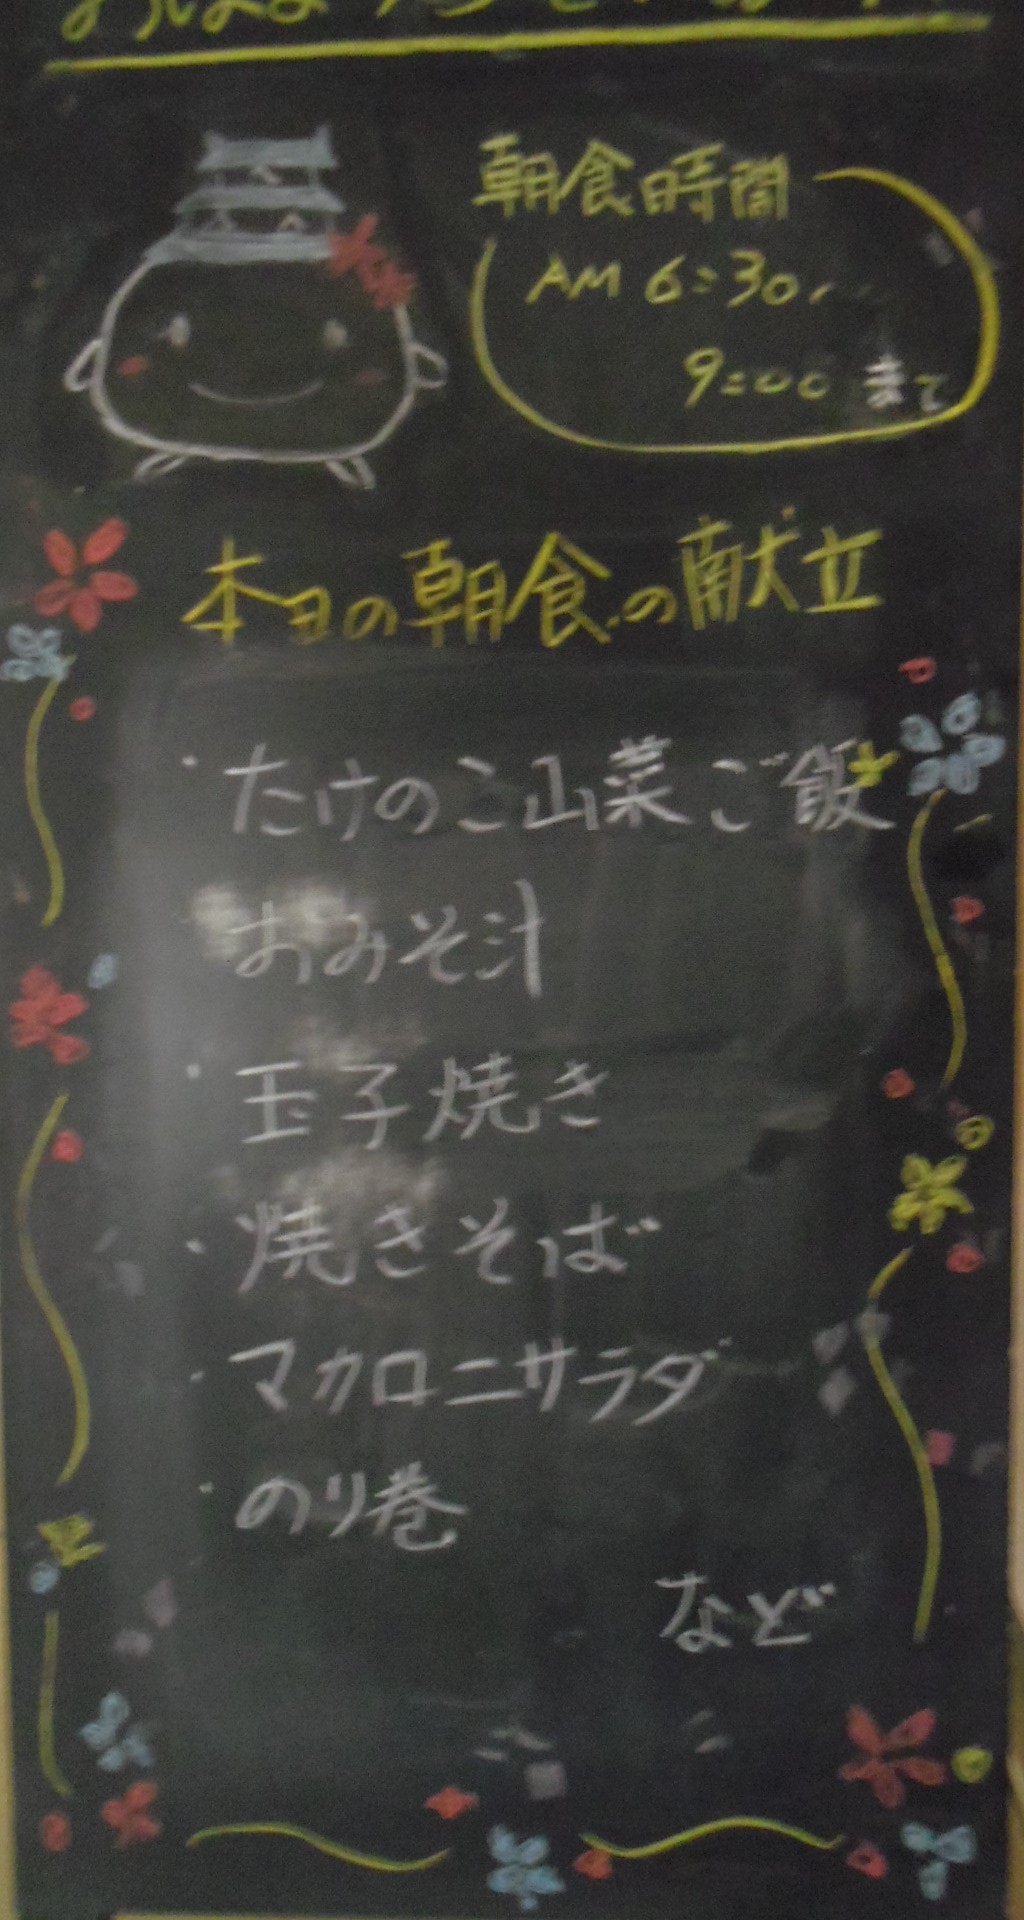 おはようございます
朝食時間
AM 6:30~
9:00 まで
本日の朝食の献立
・たけのこ山菜ご飯
おみそ汁
・玉子焼き
・焼きそば
・マカロニサラダ
・のり巻
など